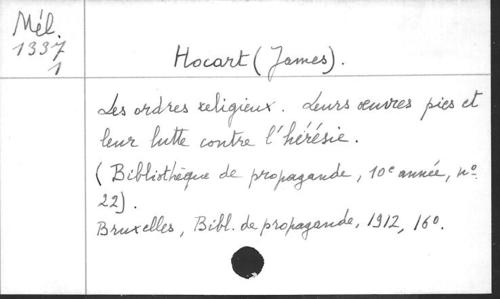 Mél.
1337
1
Hocart (James).
Les ordres religieux. Leurs œuvres pies et
leur lutte contre l'hérésie.
(Bibliothèque de propagande, 10e année, no
22).
Bruxelles, Bibl. de propagande, 1912, 16o.